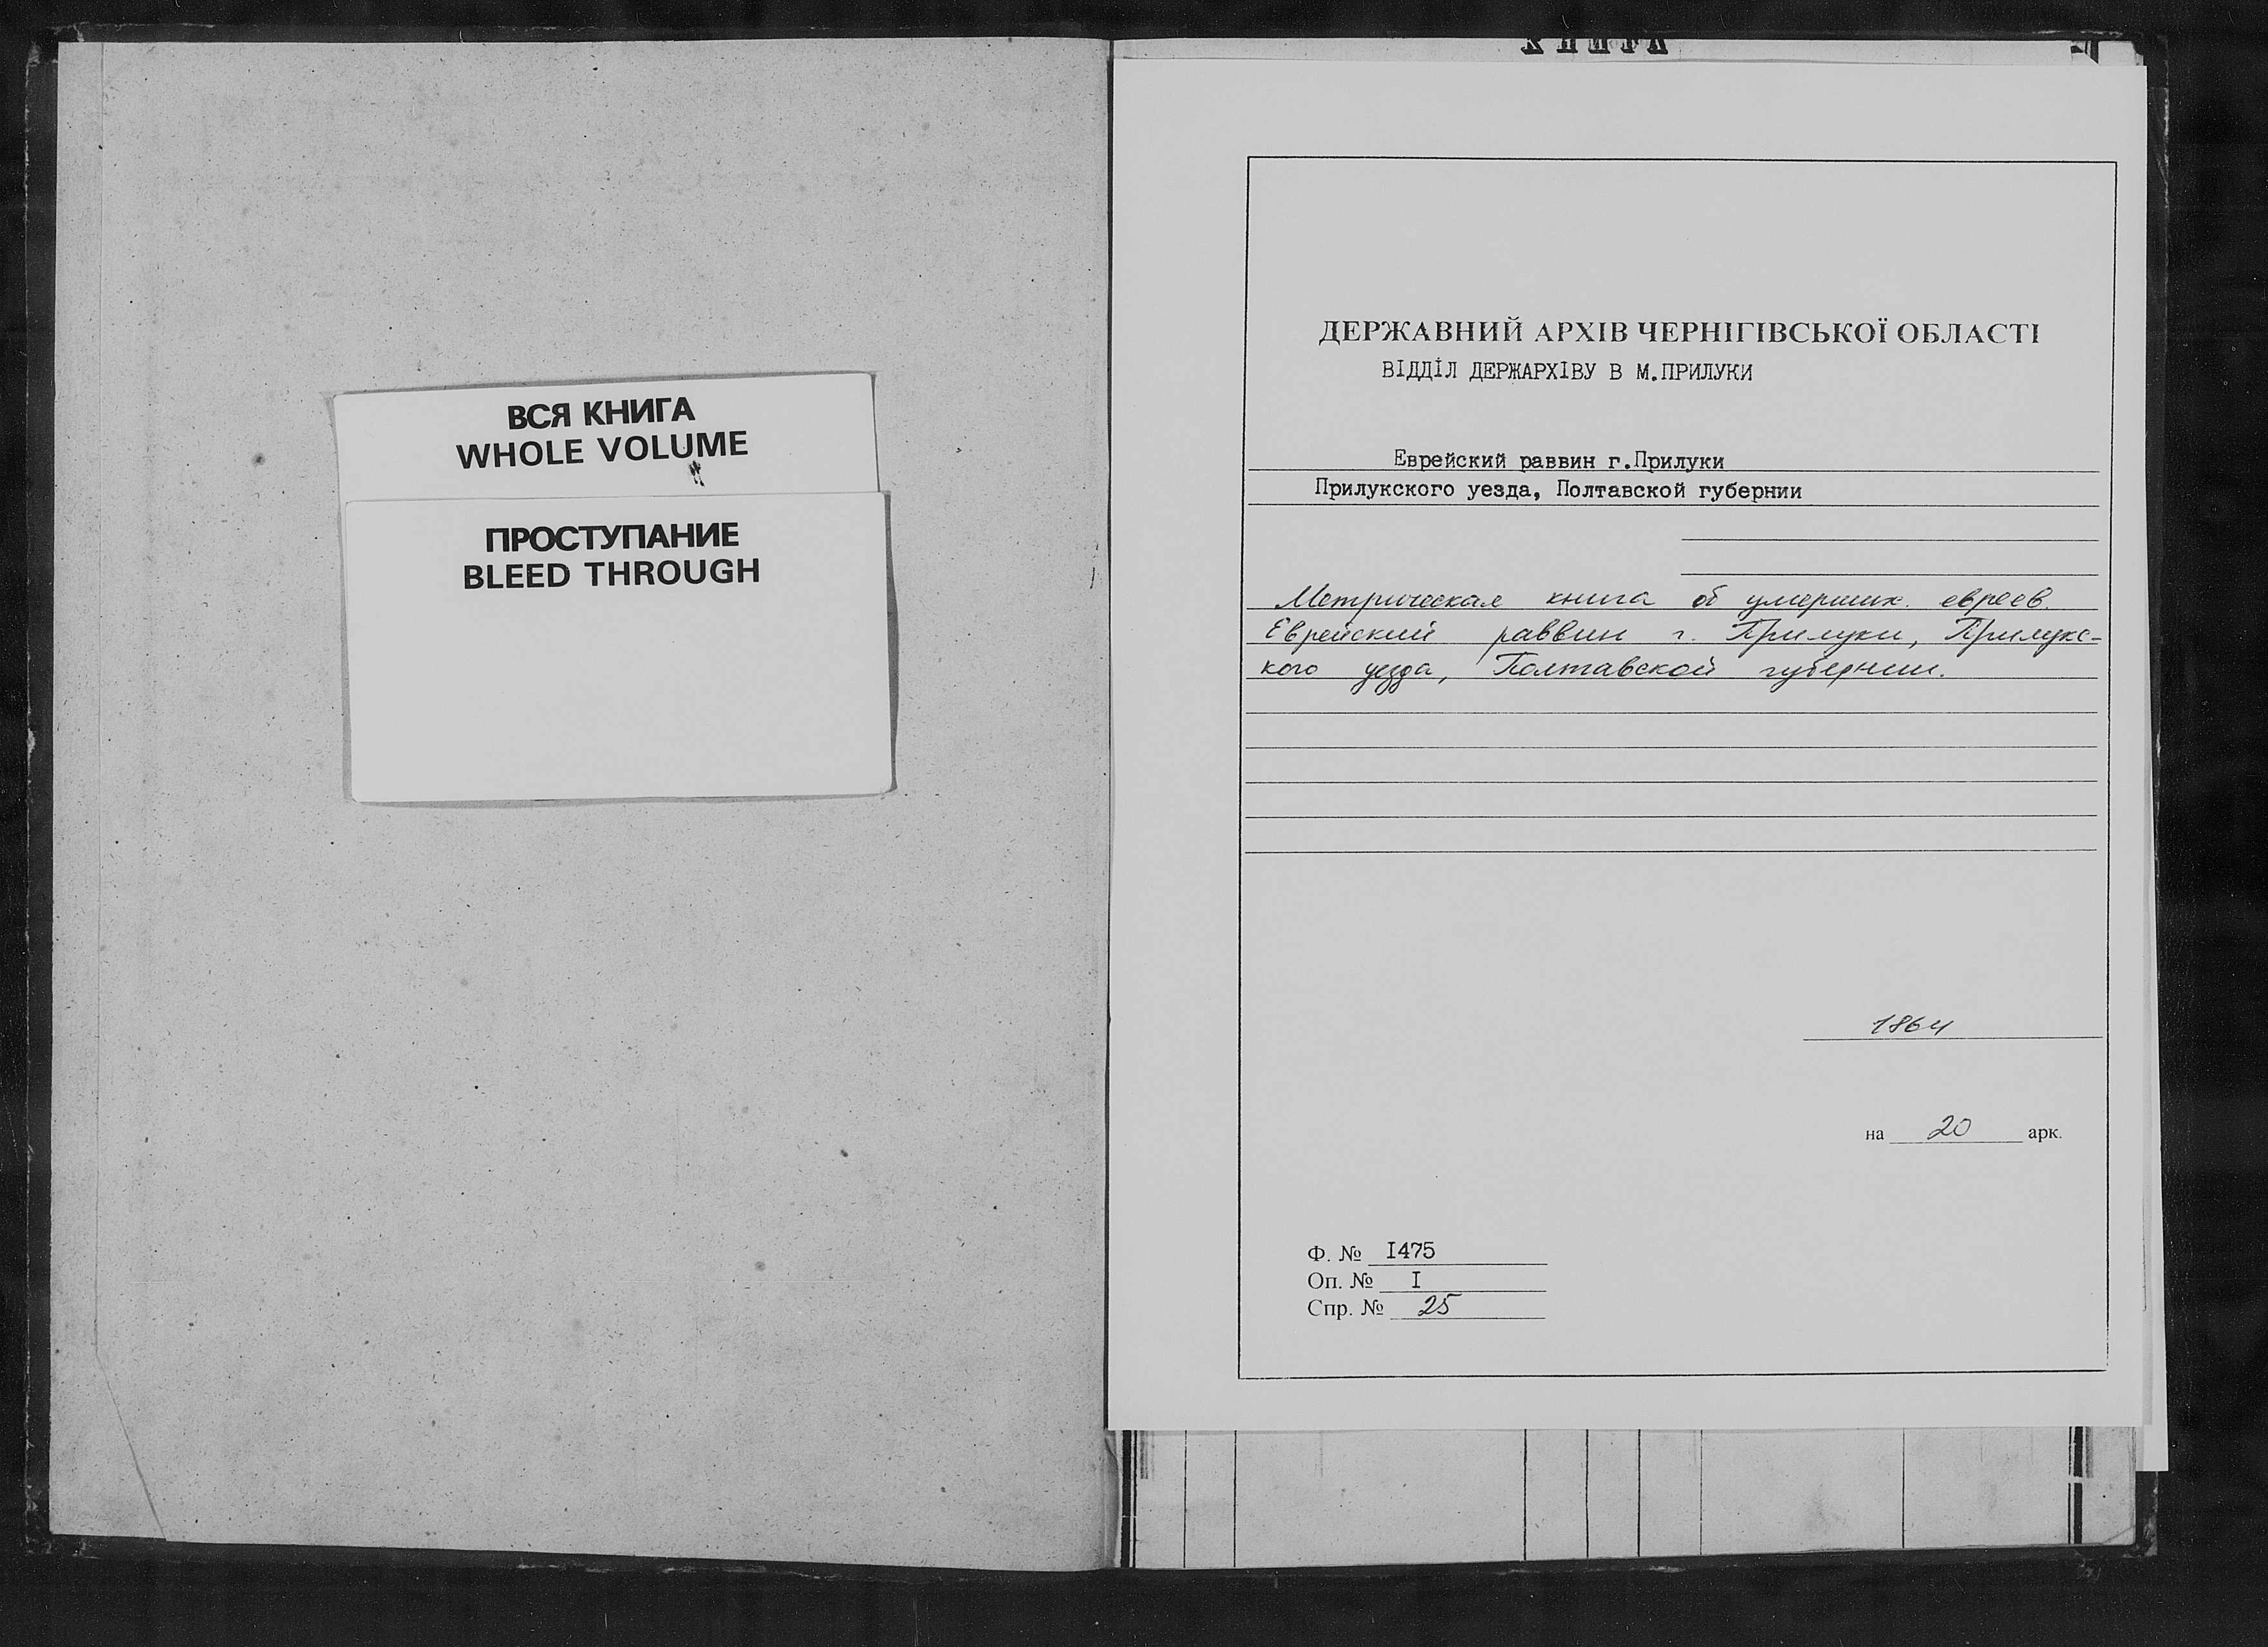 ВСЯ КНИГА
WHOLE VOLUME
ПРОСТУПАНИЕ
BLEED THROUGH
КНИГА
ДЕРЖАВНИЙ АРХІВ ЧЕРНІГІВСЬКОЇ ОБЛАСТІ
ВІДДІЛ ДЕРЖАРХІВУ В М.ПРИЛУКИ
Еврейский раввин г.Прилуки
Прилукского уезда, Полтавской губернии
Метрическая книга об умерших евреев.
Еврейский раввин г. Прилуки, Прилукс-
кого уезда, Полтавской губернии.
1864
на 20 арк.
Ф. № I475
Оп. № I
Спр. № 25